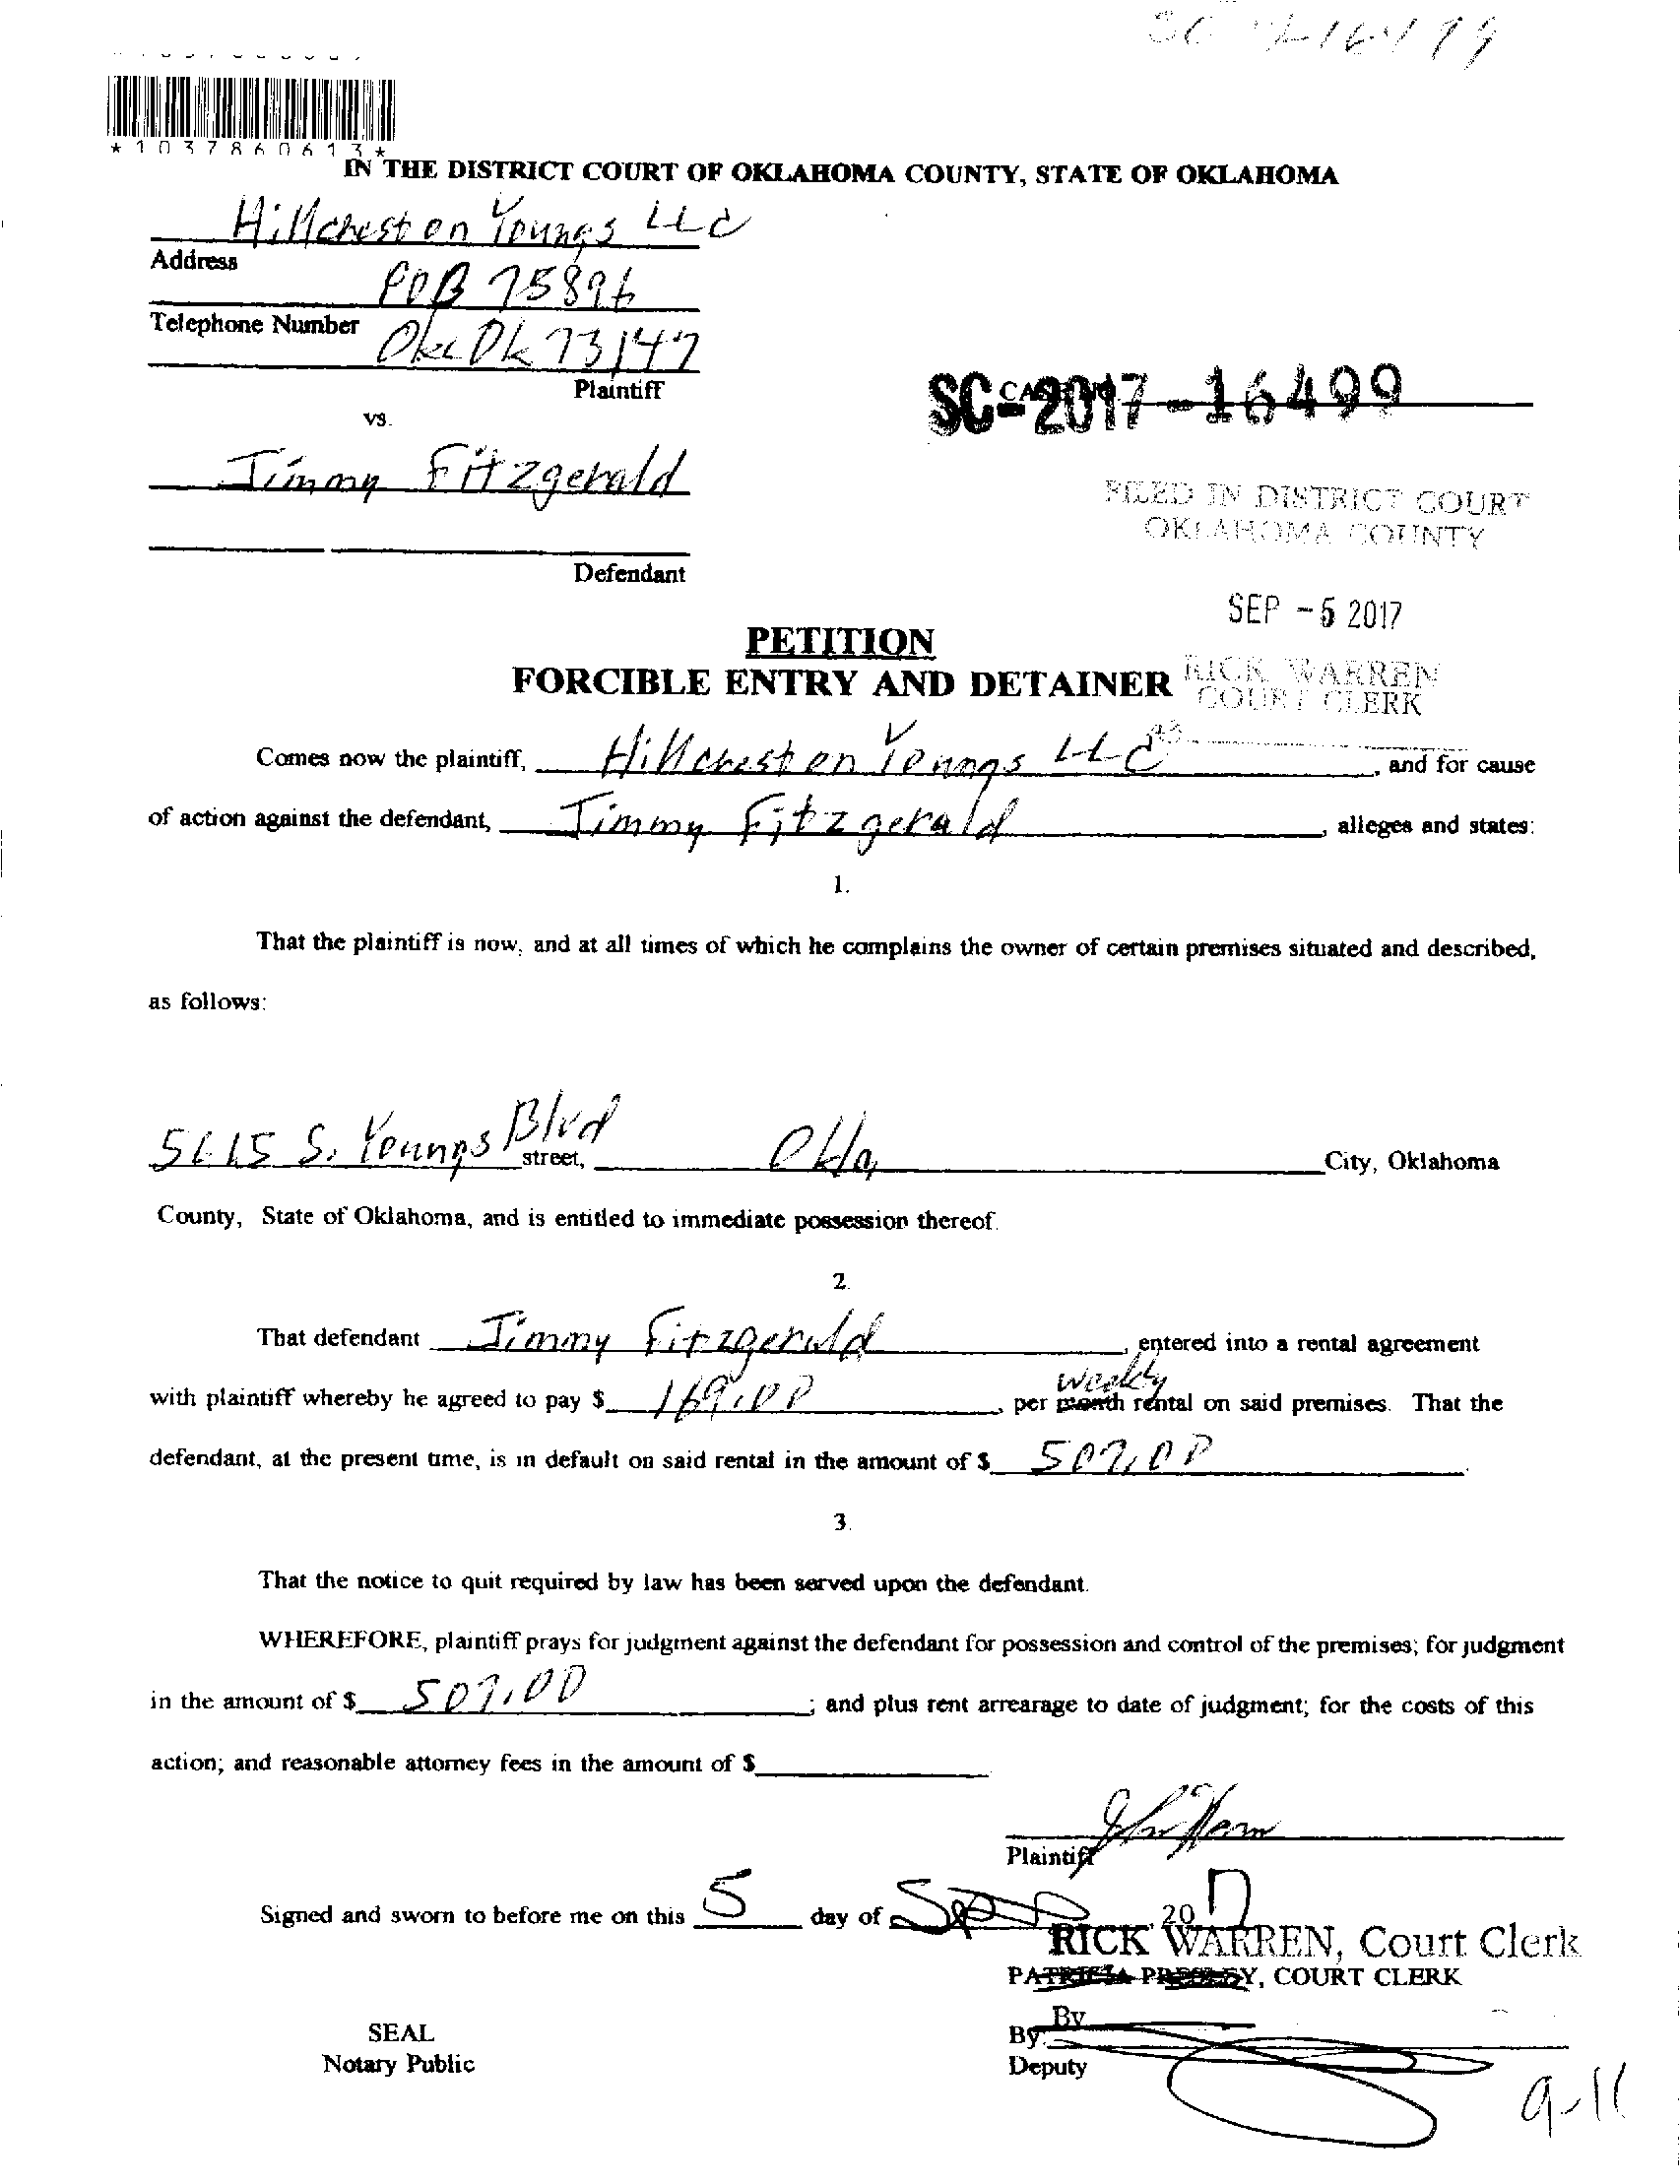 *1037860613*
IN THE DISTRICT COURT OF OKLAHOMA COUNTY, STATE OF OKLAHOMA
Hillcrest on Youngs LLC
Address
POB 75896
Telephone Number
Okc Ok 73147
Plaintiff
SC-2017-16499
vs.
Jimmy Fitzgerald
FILED IN DISTRICT COURT
OKLAHOMA COUNTY
Defendant
SEP -5 2017
PETITION
FORCIBLE ENTRY AND DETAINER
RICK WARREN
COURT CLERK
Comes now the plaintiff, Hillcrest on Youngs LLC, and for cause
of action against the defendant, Jimmy Fitzgerald, alleges and states:
1.
That the plaintiff is now, and at all times of which he complains the owner of certain premises situated and described,
as follows:
5615 S. Youngs Blvd street, Okla City, Oklahoma
County, State of Oklahoma, and is entitled to immediate possession thereof.
2.
That defendant Jimmy Fitzgerald, entered into a rental agreement
with plaintiff whereby he agreed to pay $ 169.00, per month weekly rental on said premises. That the
defendant, at the present time, is in default on said rental in the amount of $ 507.00.
3.
That the notice to quit required by law has been served upon the defendant.
WHEREFORE, plaintiff prays for judgment against the defendant for possession and control of the premises; for judgment
in the amount of $ 507.00; and plus rent arrearage to date of judgment; for the costs of this
action; and reasonable attorney fees in the amount of $
Plaintiff
Signed and sworn to before me on this 5 day of Sept, 2017
RICK WARREN, Court Clerk
PATRICIA PRESLEY, COURT CLERK
By
SEAL
By:
Notary Public
Deputy
9-11